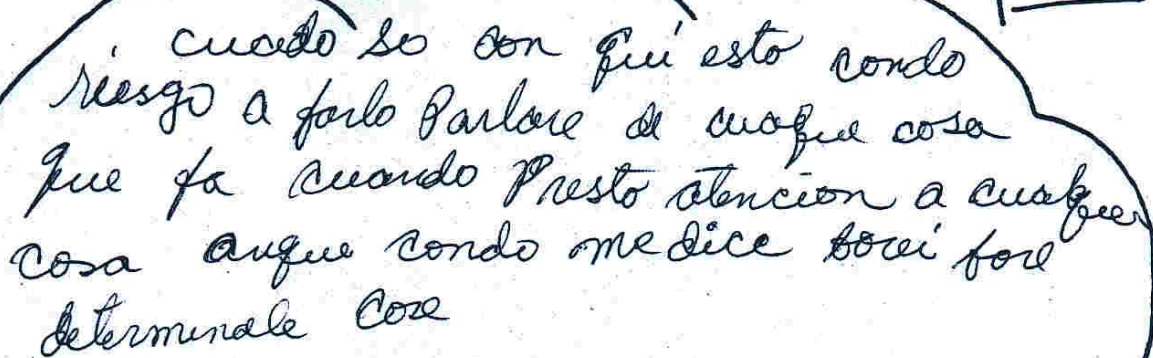 cuado so con qui esto condo
riesgo a farlo Parlare de cuaque cosa
que fa cuando Presto atencion a cualquer
cosa anque condo me dice fare
determinale cose